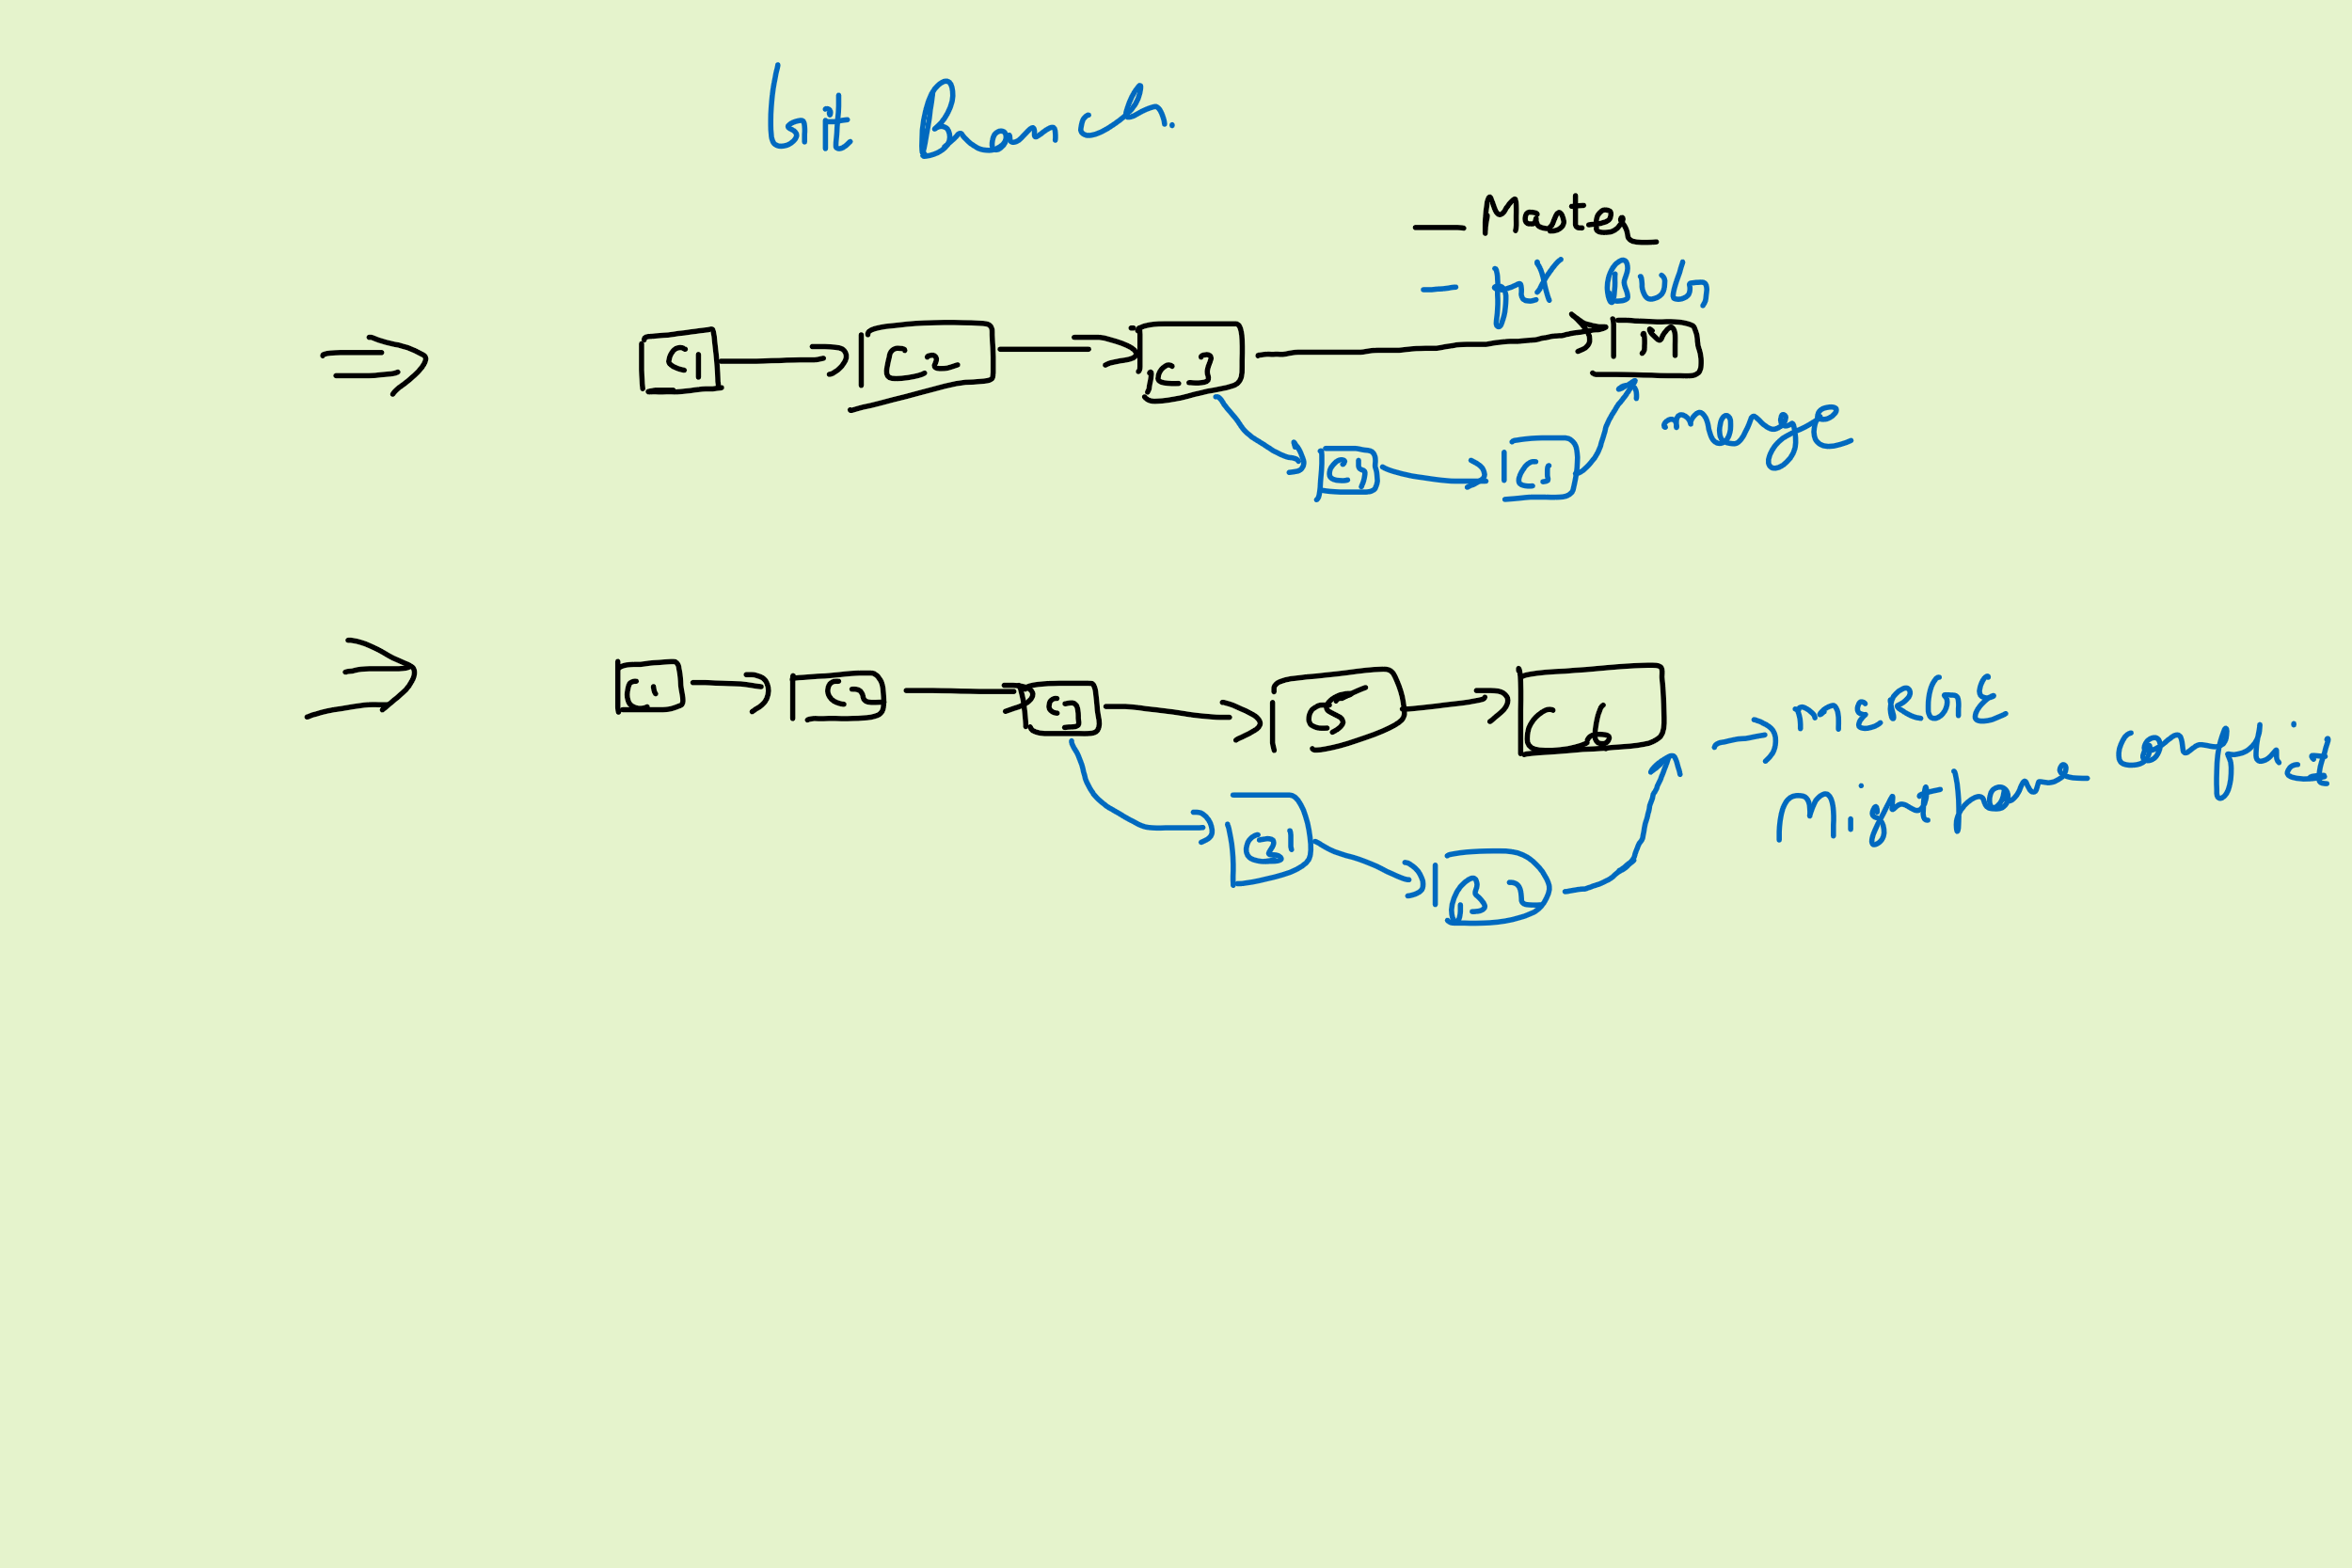 Git Branch.
— Master
- fix Bug
C1 C2 C3 M
merge
C1 C2 C3 C5 C6
MERGE
Might have conflict
B1 B2